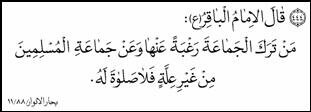 (٤٤٤) قَالَ الْاِمَامُ الْبَاقِرُ(ع):
مَنْ تَرَكَ الْجَمَاعَةَ رَغْبَةً عَنْهَا وَعَنْ جَمَاعَةِ الْمُسْلِمِينَ
مِنْ غَيْرِ عِلَّةٍ فَلَا صَلٰوةَ لَهُ.
بحار الانوار ١١/٨٨